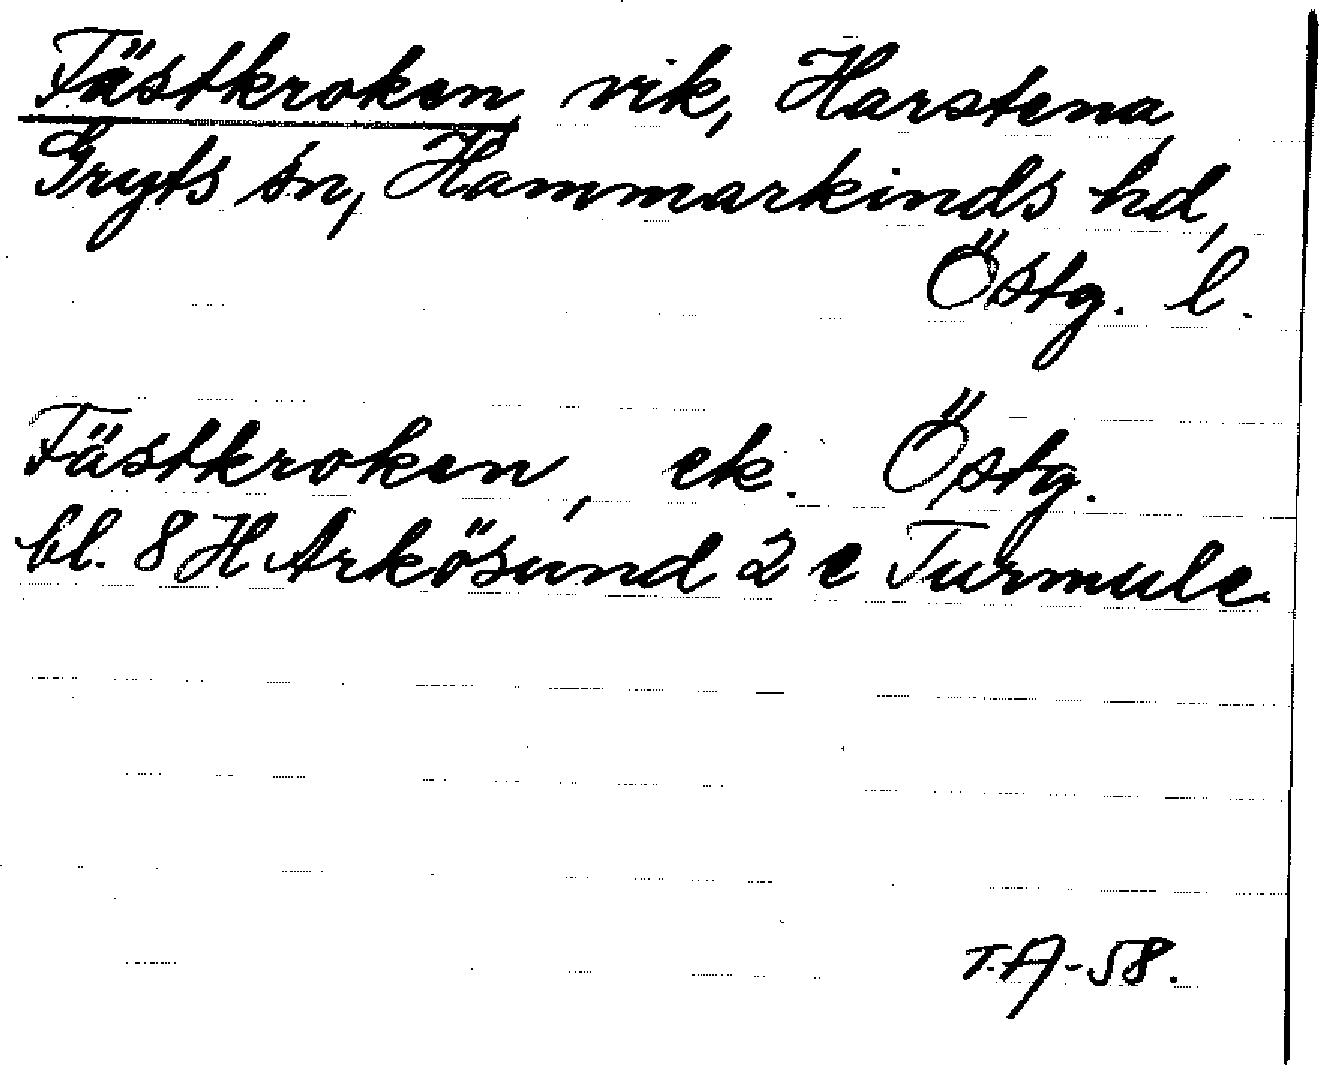 Fästkroken vik, Harstena,
Gryts sn, Hammarkinds hd,
Östg. l.
Fästkroken, ek. Östg.
bl. 8 H Arkösund 2 e Turmule
T.A-58.